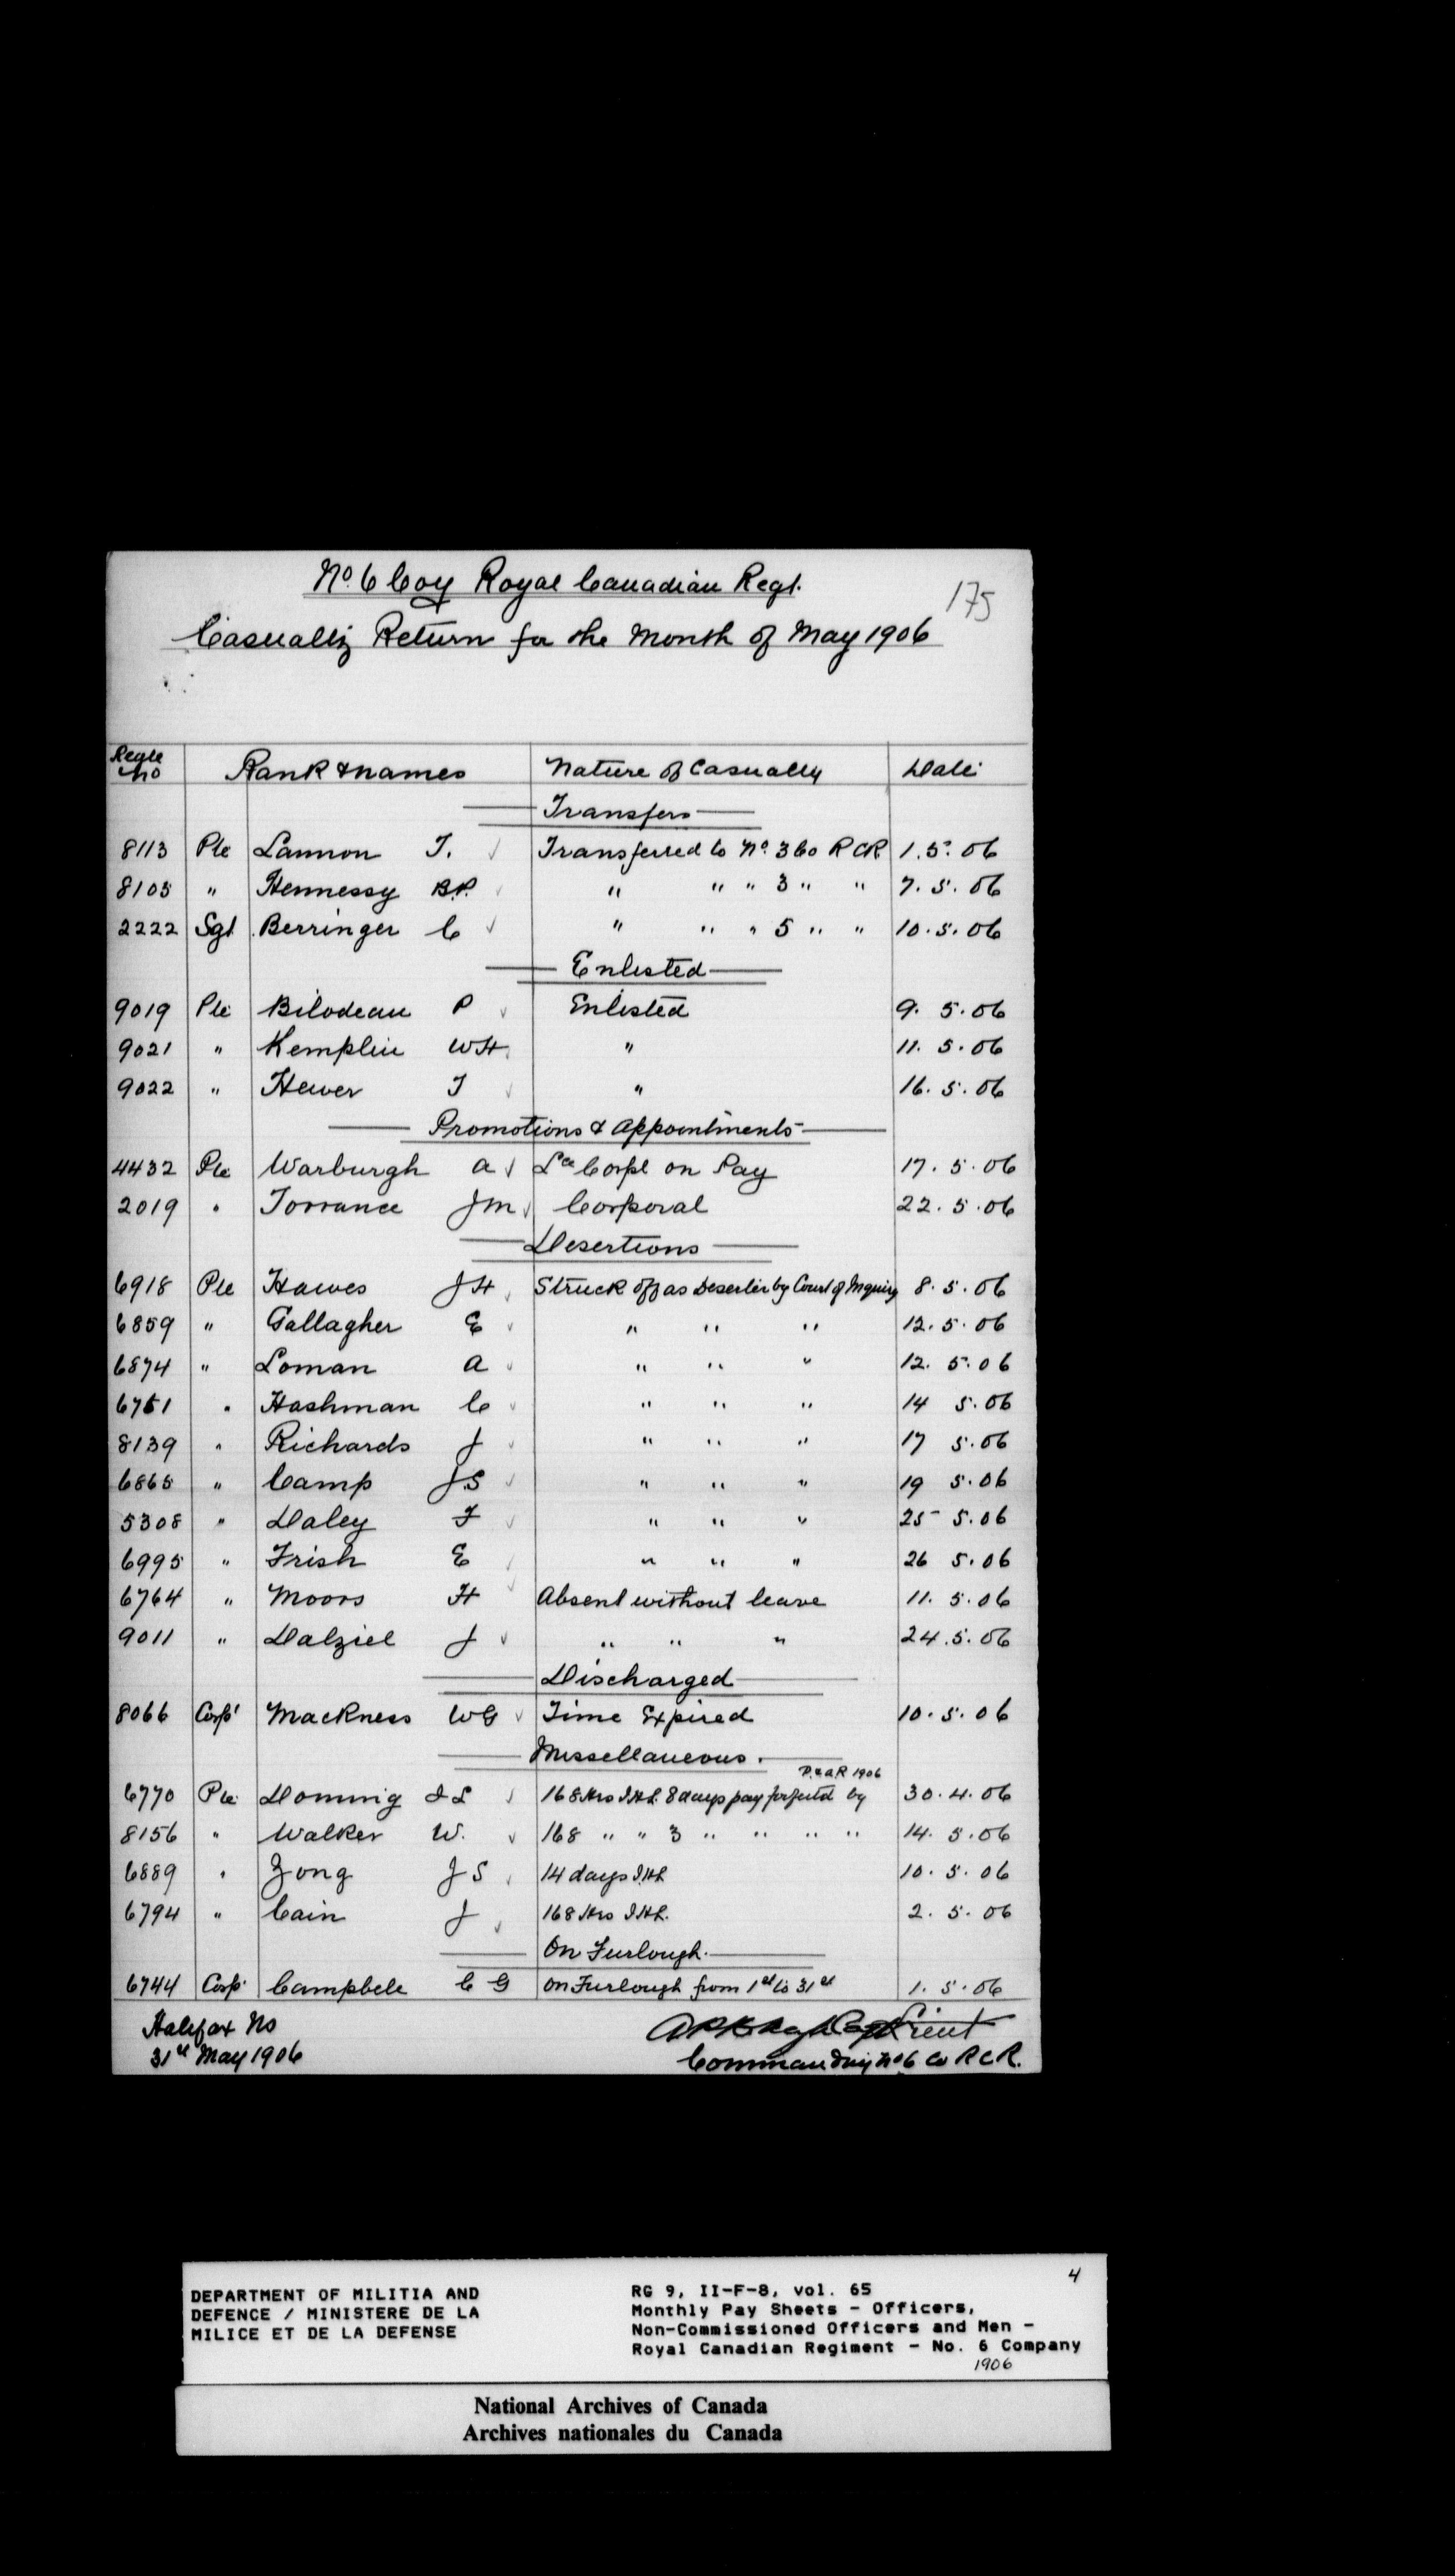 No. 6 Coy Royal Canadian Regt.
175
Casualty Return for the Month of May 1906
Regtl No Rank & names Nature of Casualty Date
Transfers
8113 Pte Lannon T. Transferred to No. 3 Co RCR 1.5.06
8105 " Hennessy B.P. " " " 3 " " 7.5.06
2222 Sgt Berringer C " " " 5 " " 10.5.06
Enlisted
9019 Pte Bilodeau P Enlisted 9.5.06
9021 " Kemplin WH " 11.5.06
9022 " Hewer T " 16.5.06
Promotions & Appointments
4432 Pte Warburgh A Lce Corpl on Pay 17.5.06
2019 " Torrance JM Corporal 22.5.06
Desertions
6918 Pte Hawes JH Struck off as Deserter by Court of Inquiry 8.5.06
6859 " Gallagher E " " " 12.5.06
6874 " Loman A " " " 12.5.06
6751 " Hashman C " " " 14 5.06
8139 " Richards J " " " 17 5.06
6865 " Camp J.S " " " 19 5.06
5308 " Daley F " " " 25 5.06
6995 " Frish E " " " 26 5.06
6764 " Moors H Absent without leave 11.5.06
9011 " Dalziel J " " " 24.5.06
Discharged
8066 Corpl Mackness WG Time Expired 10.5.06
Missellaneous.
P.&A.R 1906
6770 Pte Doming 168 Hrs I.H.L. 8 days pay forfeited by 30.4.06
8156 " Walker W. 168 " " 3 " " " " 14.5.06
6889 " Zong JS 14 days I.H.L 10.5.06
6794 " Cain J 168 Hrs I.H.L. 2.5.06
On Furlough.
6744 Corp Campbell C G On Furlough from 1st to 31st 1.5.06
Halifax NS
31st May 1906
Lieut
Commanding No 6 Co RCR.
4
DEPARTMENT OF MILITIA AND
DEFENCE / MINISTERE DE LA
MILICE ET DE LA DEFENSE
RG 9, II-F-8, vol. 65
Monthly Pay Sheets - Officers,
Non-Commissioned Officers and Men -
Royal Canadian Regiment - No. 6 Company
1906
National Archives of Canada
Archives nationales du Canada